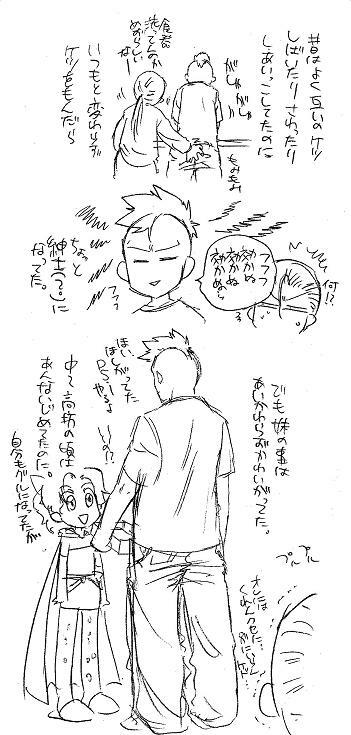 昔はよく互いのケツ
しばいたりさわったり
しあいっこしてたのに
がしゃ
がしゃ
もみもみ
食器
洗ってんの
めずらしい
ない
いつもと変わらず
ケツをもんだら
フフフ
効かぬ
効かぬ
効かぬわ
何!?
フフッ
ちょっと
紳士(?)に
なってた。
でも妹の事は
あいかわらずかわいがってた。
ほい、
ほしがってた
やるよ
いいの!?
中〜高坊の頃は
あんないじめてたのに。
自分もグルになってたが
プルプル
オレには
くれんクセに…